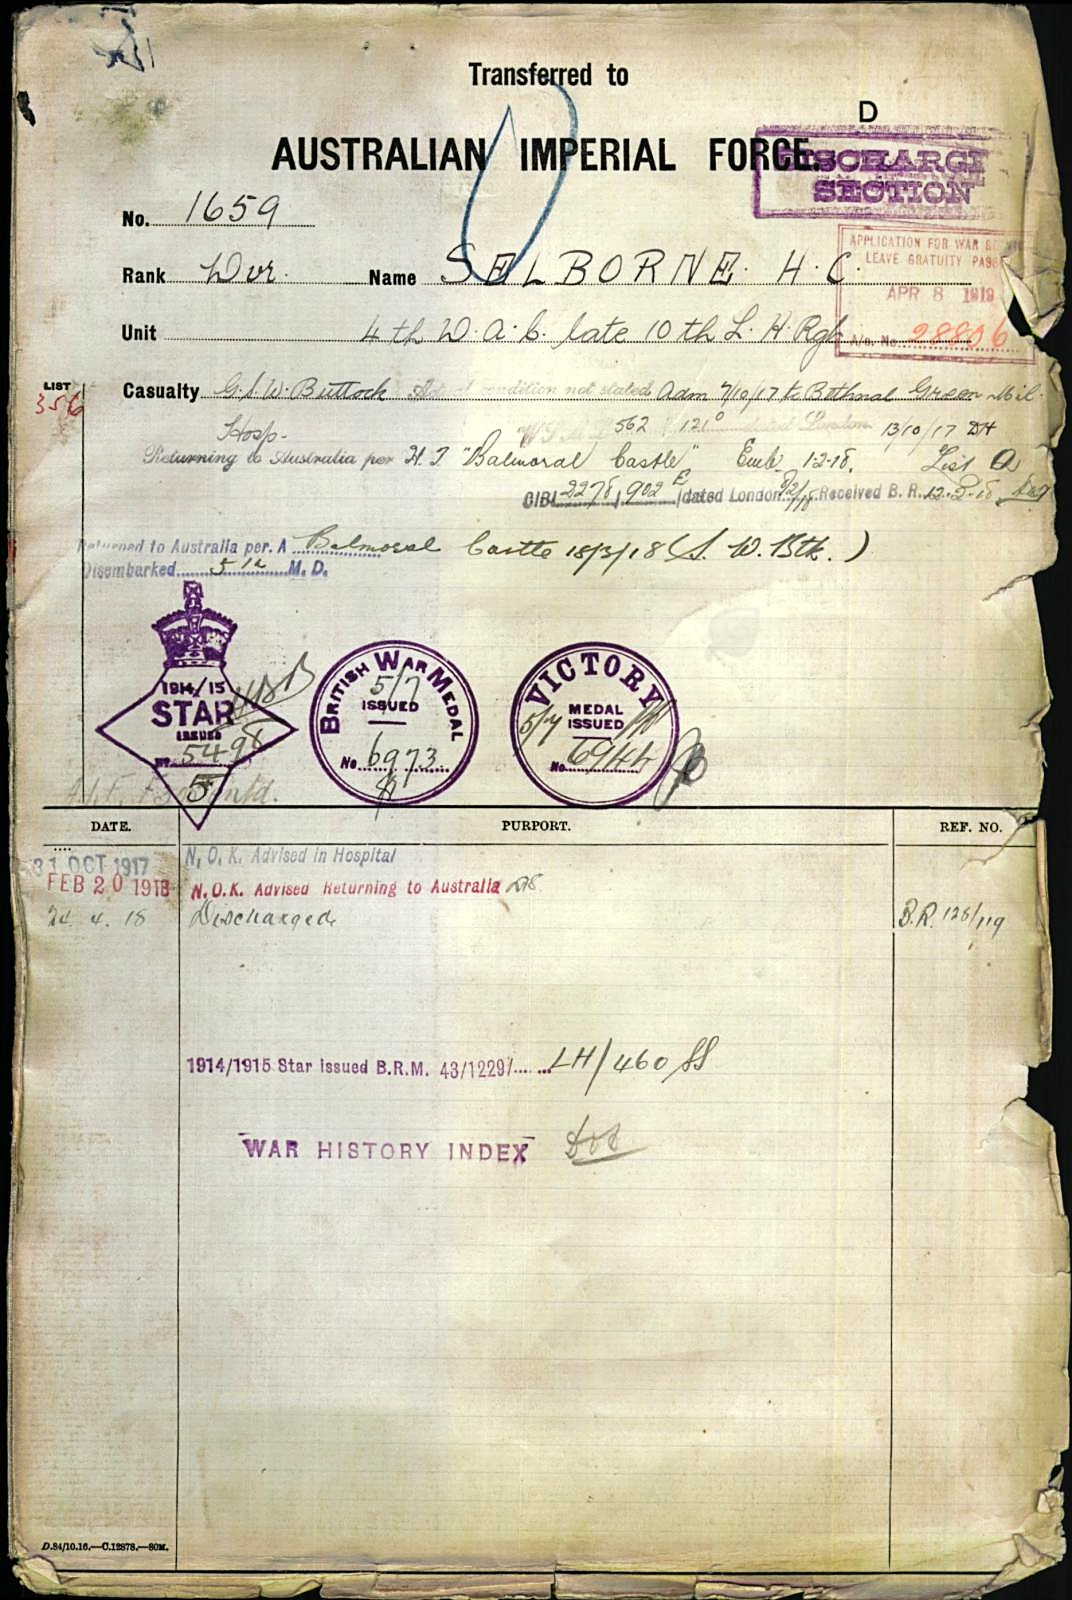 Transferred to
D
AUSTRALIAN IMPERIAL FORCE.
DISCHARGE
SECTION
No. 1659
APPLICATION FOR WAR
LEAVE GRATUITY PASSED
APR 8 1919
A/c. No. 28806
Rank Dvr. Name SELBORNE. H. C.
Unit 4th D. A. C. late 10th L. H. Rgt
LIST
356
Casualty G. S. W. Buttock condition not stated Adm 7/10/17 to Bethnal Green Mil.
Hosp- 562 121 London 13/10/17 DH
Returning to Australia per H. T "Balmoral Castle" Emb. 1-2-18. List Q
C/B/L 2278/902 E/dated London 8/2/18 Received B. R. 12-3-18
Returned to Australia per. A Balmoral Castle 18/3/18 (S. W. Btk.)
Disembarked 5th M. D.
1914/15
STAR
ISSUED
No. 5498
BRITISH WAR MEDAL
5/7
ISSUED
No 6973
VICTORY
MEDAL
5/7 ISSUED
No. 6944
DATE. PURPORT. REF. NO.
31 OCT 1917 N. O. K. Advised in Hospital
FEB 20 1918 N.O.K. Advised Returning to Australia
24. 4. 18 Discharged B.R. 128/119
1914/1915 Star issued B.R.M. 43/1229/ LH/460
WAR HISTORY INDEX
D.84/10.16.—C.12878.—80M.